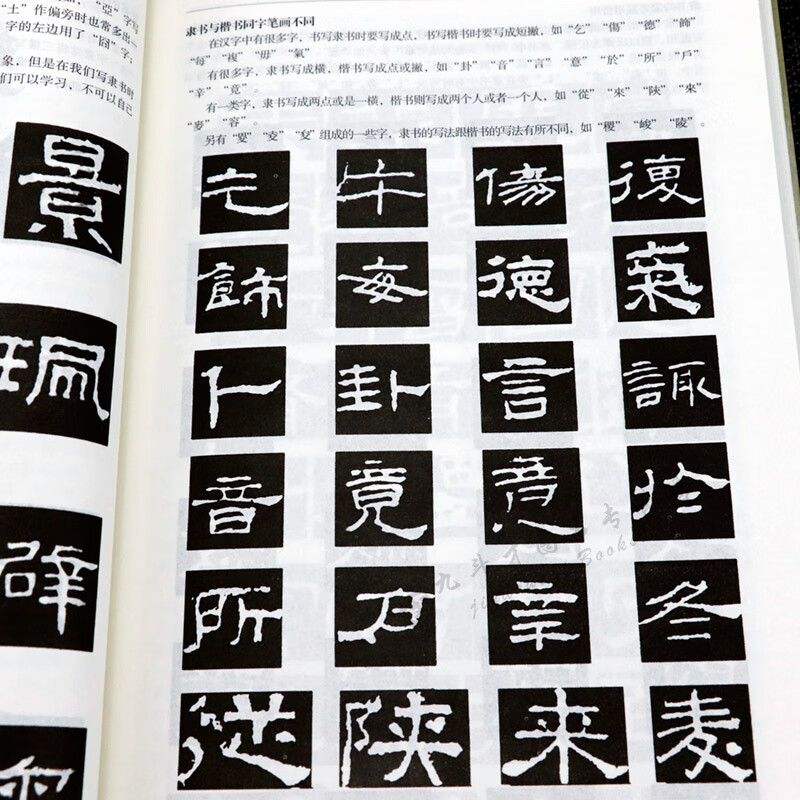 “土”作偏旁时也常多出一
字的左边用了“囧”字；
象，但是在我们写隶书时
们可以学习，不可以自己
景
珮
隶书与楷书同字笔画不同
在汉字中有很多字，书写隶书时要写成点，书写楷书时要写成短撇，如“乞”“傷”“德”“飾”
“每”“複”“毋”“氣”
有很多字，隶书写成横，楷书写成点或撇，如“卦”“音”“言”“意”“於”“所”“戶”
“辛”“竟”。
有一类字，隶书写成两点或是一横，楷书则写成两个人或者一个人，如“從”“來”“陜”“來”
“麥”“容”。
另有“㚇”组成的一些字，隶书的写法跟楷书的写法有所不同，如“稷”“峻”“陵”。
乞 牛 傷 復
飾 每 德 氣
卜 卦 言 諏
音 竟 意 於
所 戶 辛 冬
從 陜 来 麦